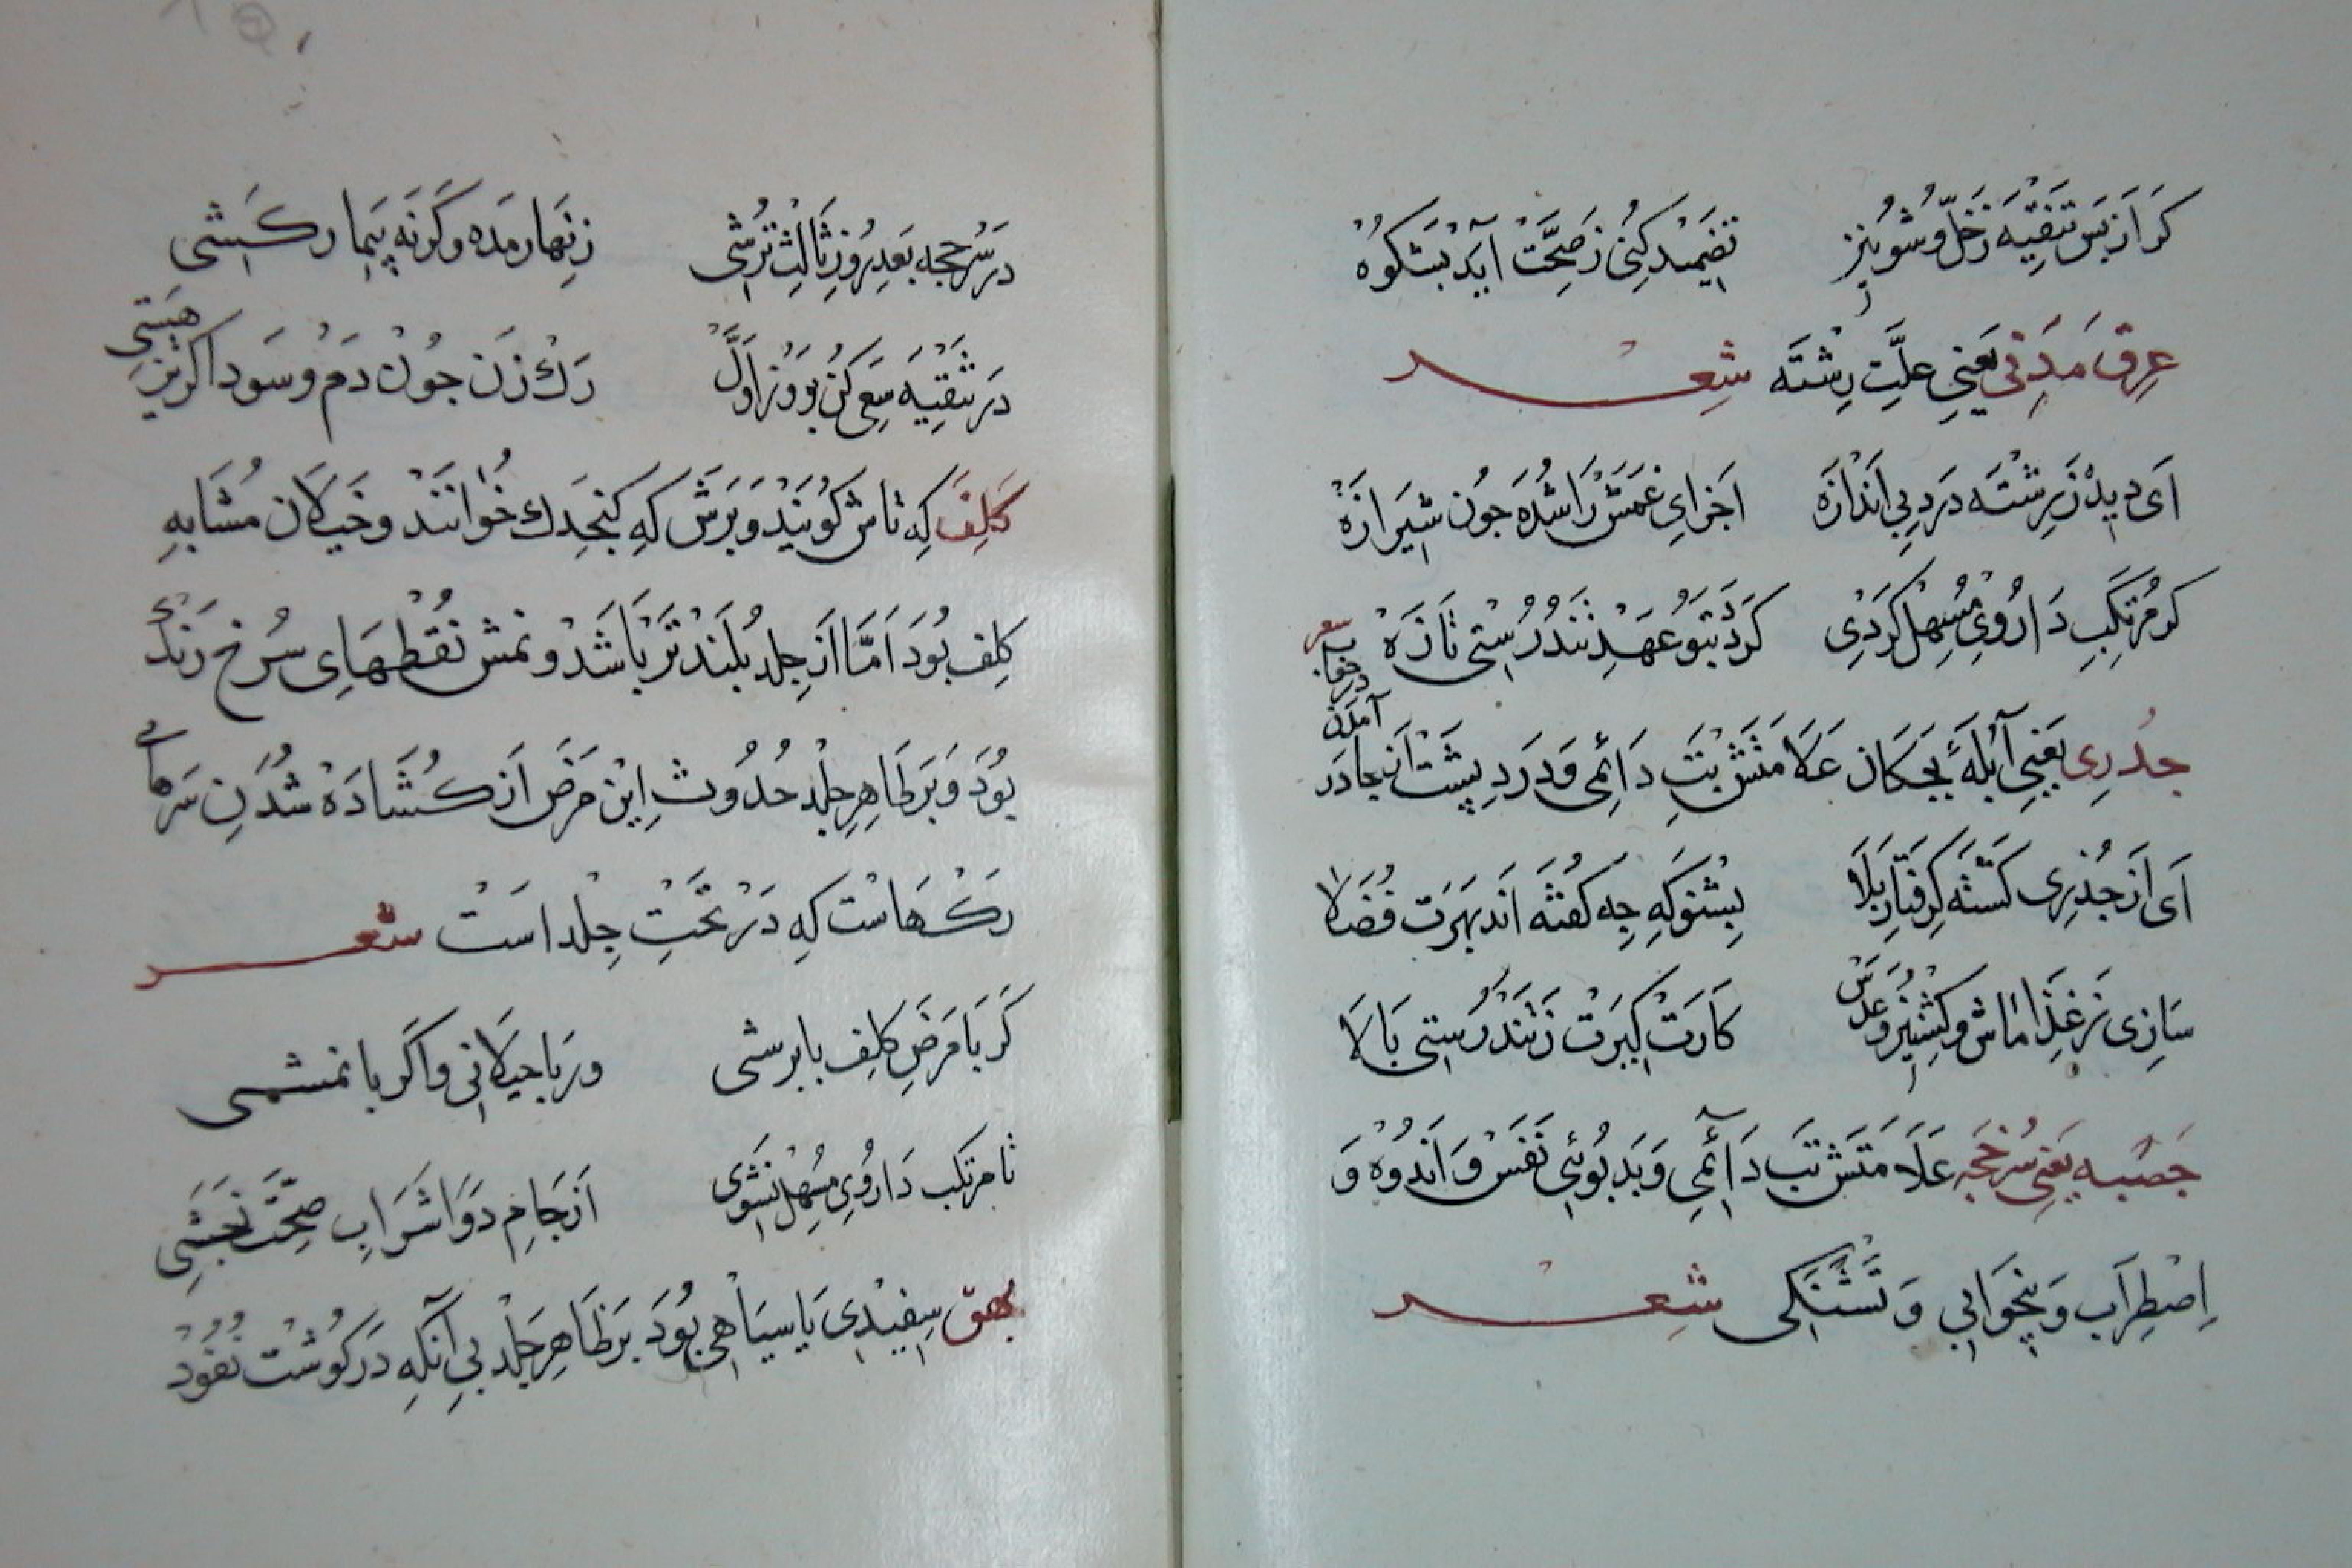 كر از پس تنقیه ز خلّ و شونیز تضمید كنی ز صحّت آید بشكوه
عرق مدنی یعنی علّت رشته شعر
ای دیده ز رشته درد بی اندازه اجزای غمش را شده چون شیرازه
كر مرتكب داروی مسهل كردی كردد بتو عهد تندرستی تازه
جدری یعنی آبلهٔ بچكان علامتش تب دائمی و درد پشت از جا در
خواب در آمدن شعر
ای از جدری كشته كرفتار بلا بشنو كه چه كفته اند بهرت فضلا
سازی ز غذا ماش و كشنیز و عدس كارت كیرت ز تندرستی بالا
حصبه یعنی سرخجه علامتش تب دائمی و بد بوئی نفس و اندوه و
اضطراب و بیخوابی و تشنكی شعر
در سرخجه بعد روز ثالث ترشی زنهار مده وكرنه پیما ركشی
در تنقیه سعی كن بروز اول رك زن چون دم و سودا كر نیز هستی
كلف كه تاش كویند و برش كه كنجدك خوانند و خیلان مشابه
كلف بود امّا از جلد بلندتر باشد و نمش نقطهای سرخ رنك
بود و بر ظاهر جلد حدوث این مرض از كشاده شدن سرهای
ركهاست كه در تحت جلد است شعر
كر با مرض كلف یا برشی ور با خیلانی و اكر با نمشی
تا مرتكب داروی مسهل نشوی از جام دوا شراب صحّت نچشی
بهق سفیدی یا سیاهی بود بر ظاهر جلد بی آنكه در كوشت نفوذ